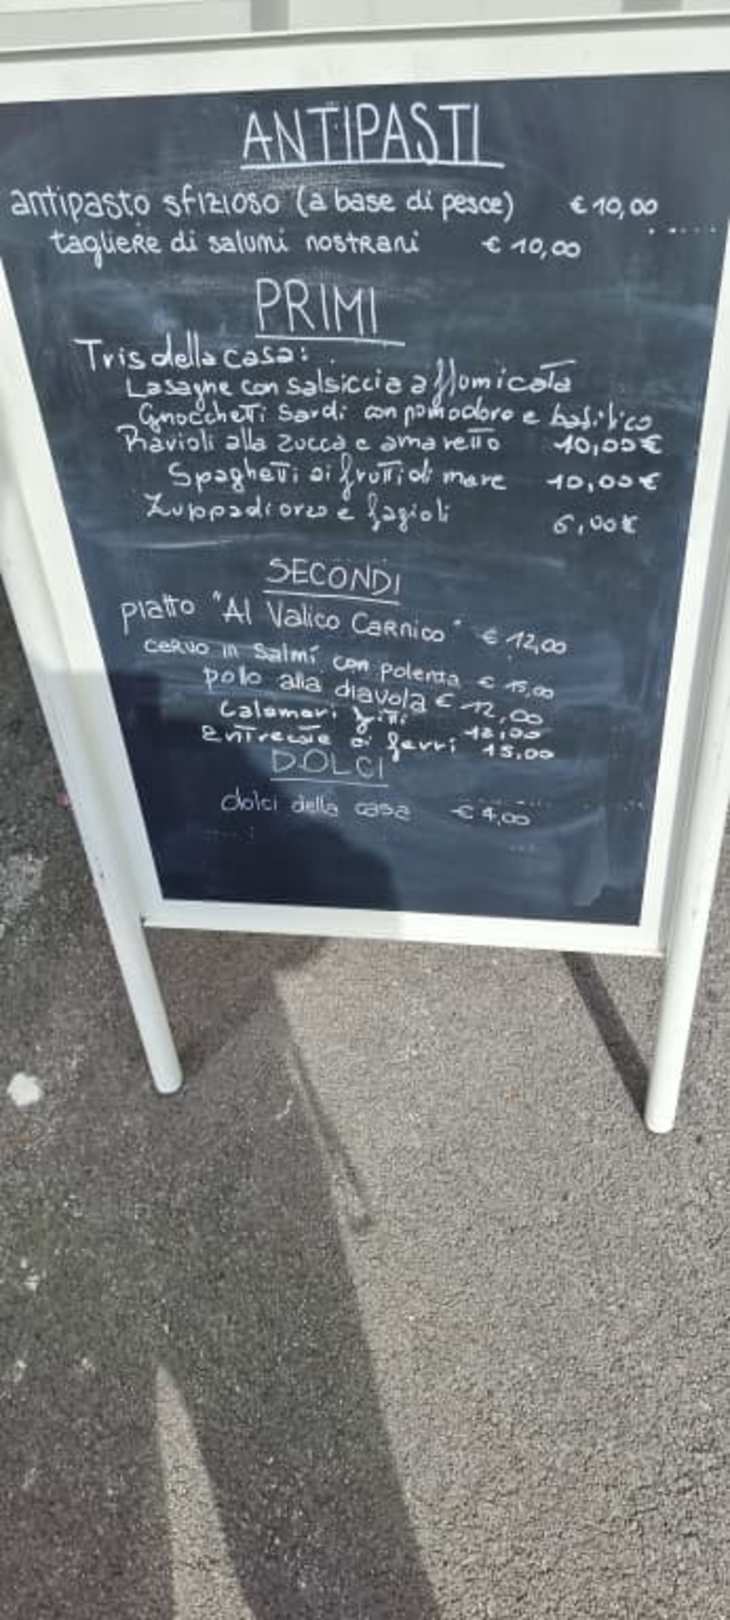 ANTIPASTI
antipasto sfizioso (a base di pesce) € 10,00
tagliere di salumi nostrani € 10,00
PRIMI
Tris della casa:
Lasagne con salsiccia affumicata
Gnocchetti Sardi con pomodoro e basilico
Ravioli alla zucca e amaretto 10,00 €
Spaghetti ai frutti di mare 10,00 €
Zuppa di orzo e fagioli 6,00 €
SECONDI
Piatto "Al Valico Carnico" € 12,00
cervo in Salmí con polenta € 15,00
pollo alla diavola € 12,00
Calamari fritti 12,00
Entrecote ai ferri 15,00
DOLCI
dolci della casa € 4,00